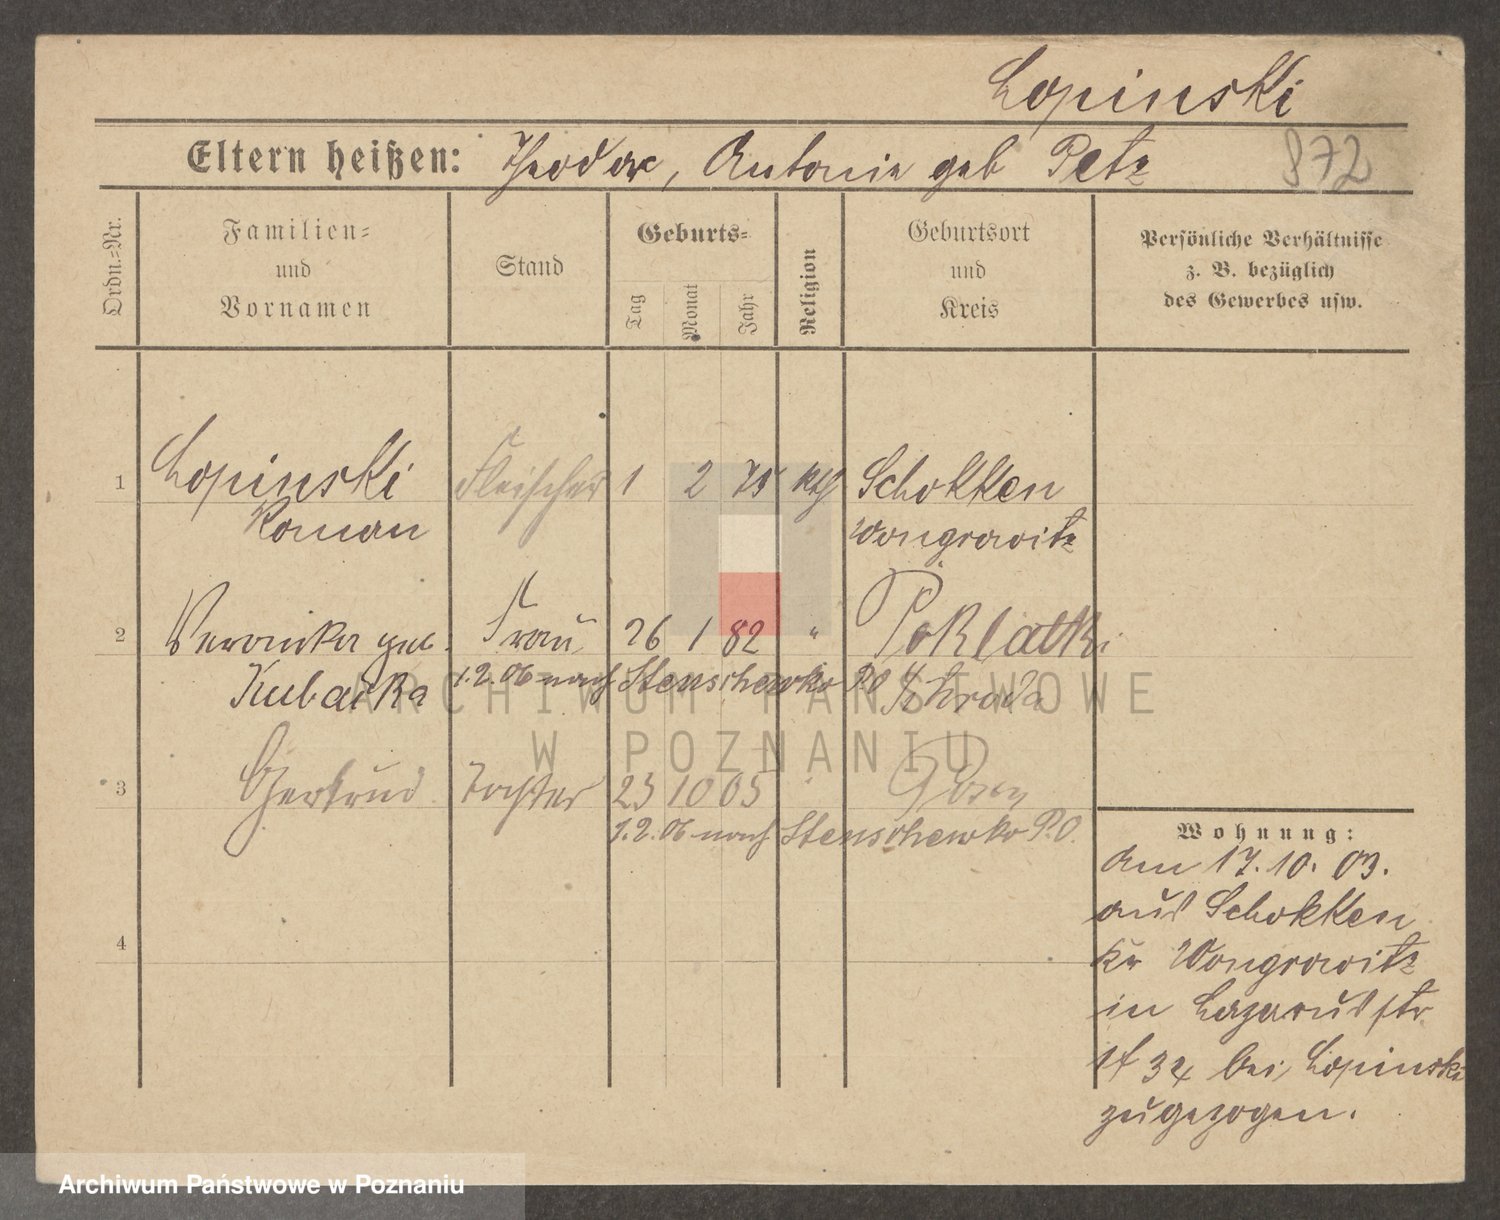 Lopinski
Eltern heißen: Theodor, Antonie geb Petz
872
Ordn.-Nr.
Familien-
und
Vornamen
Stand
Geburts-
Tag
Monat
Jahr
Religion
Geburtsort
und
Kreis
Persönliche Verhältnisse
z. B. bezüglich
des Gewerbes usw.
1 Lopinski Fleischer 1 2 75 kth Schokken
Roman Wongrowitz
2 Veronika geb. Frau 26 1 82 " Poklatki
Kubacka 1.2.06 nach Stenschewko P.O Schroda
3 Gertrud Tochter 23 10 05 " Posen
1.2.06 nach Stenschewko P.O.
4
Wohnung:
Am 17.10.03.
aus Schokken
Kr Wongrowitz
in Lazarusstr
bei Lopinski
zugezogen.
ARCHIWUM PAŃSTWOWE
W POZNANIU
Archiwum Państwowe w Poznaniu